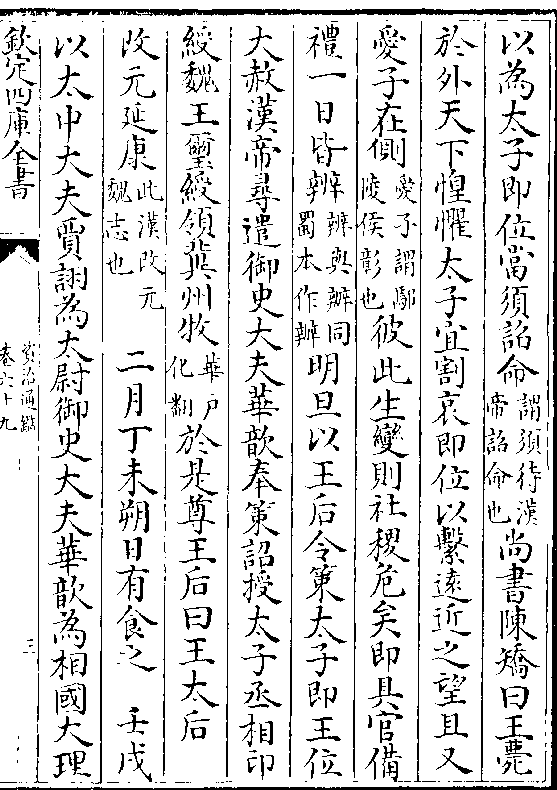 以為太子即位當須詔命謂須待漢帝詔命也尚書陳矯曰王薨
於外天下惶懼太子宜割哀即位以繫遠近之望且又
愛子在側愛子謂鄢陵侯彰也彼此生變則社稷危矣即具官備
禮一日皆辨辨與辦同蜀本作辦明旦以王后令策太子即王位
大赦漢帝尋遣御史大夫華歆奉策詔授太子丞相印
綬魏王璽綬領冀州牧華戶化翻於是尊王后曰王太后
改元延康此漢改元魏志也二月丁未朔日有食之 壬戌
以太中大夫賈詡為太尉御史大夫華歆為相國大理
欽定四庫全書
資治通鑑
卷六十九
三